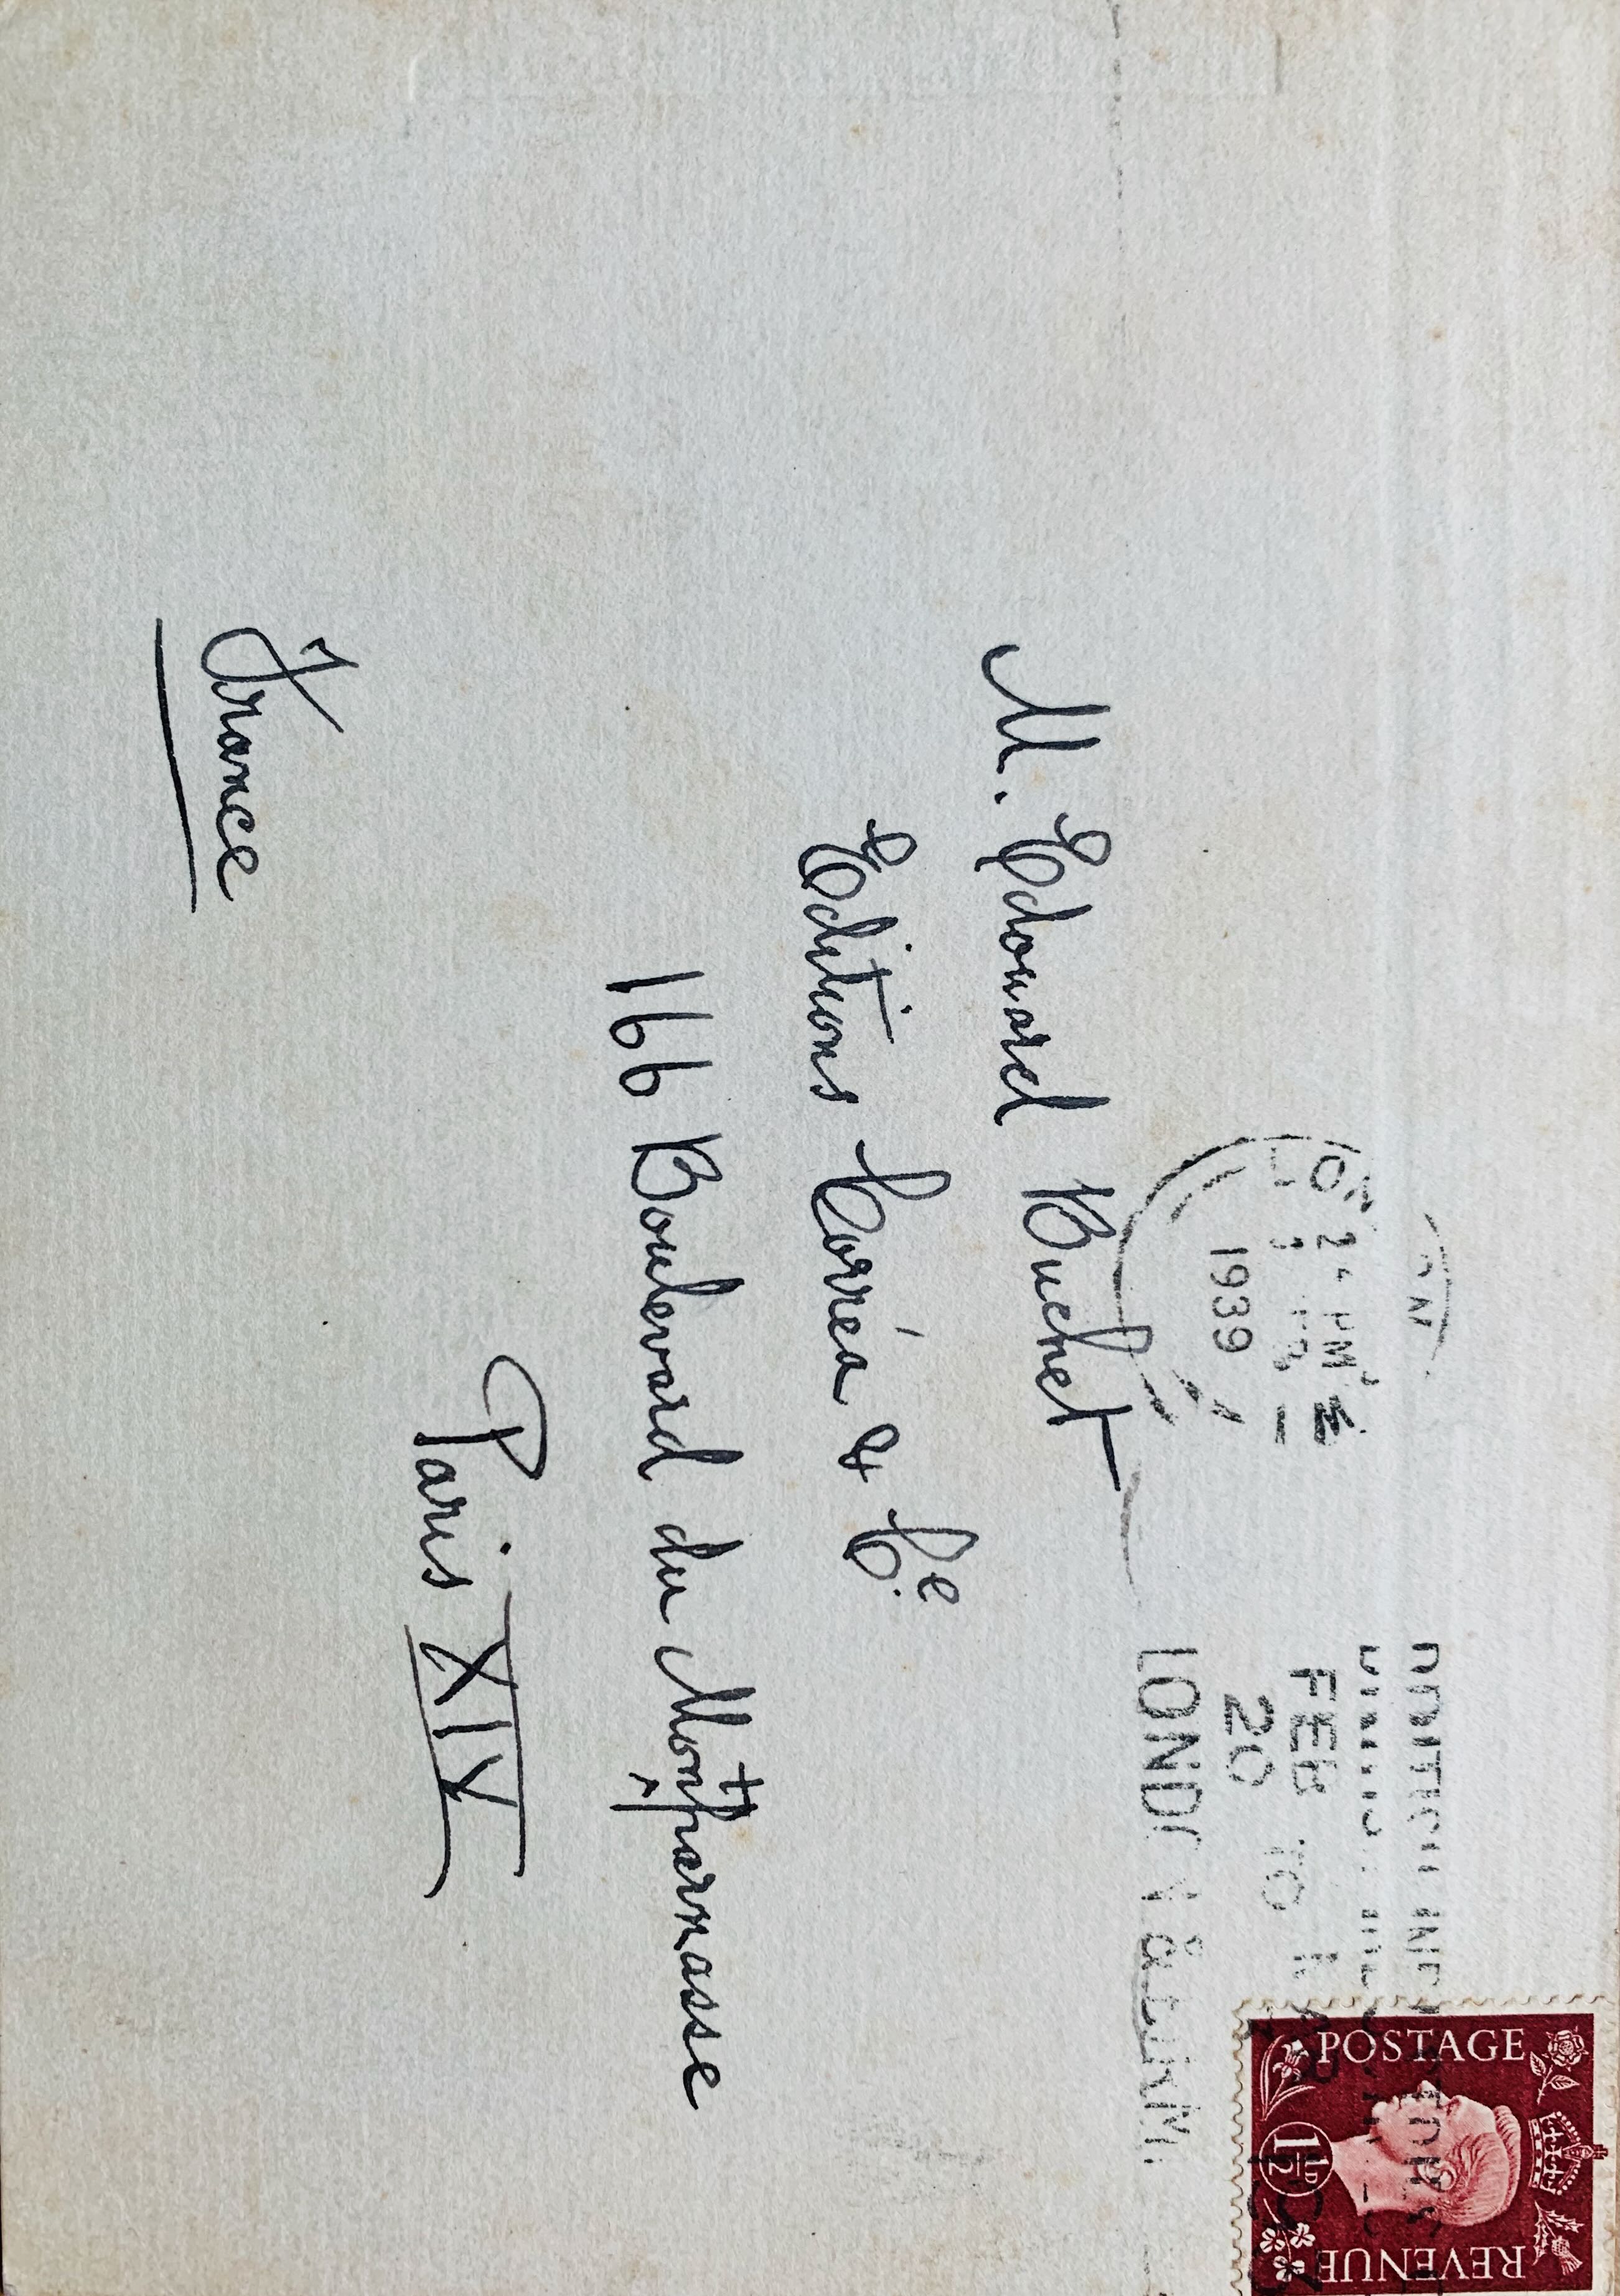 M. Edouard Buchet
Editions Corréa & C.ie
166 Boulevard du Montparnasse
Paris XIV
France
PM
1939
FEB TO
20
POSTAGE
1½D
REVENUE